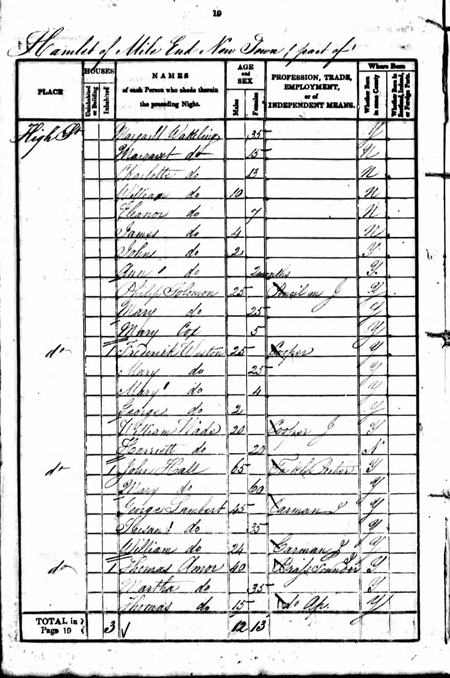 19
Hamlet of Mile End New Town (part of)
PLACE
HOUSES
Uninhabited or Building
Inhabited
NAMES of each Person who abode therein the preceding Night.
AGE and SEX
Males
Females
PROFESSION, TRADE, EMPLOYMENT, or of INDEPENDENT MEANS.
Where Born
Whether Born in same County
Whether Born in Scotland, Ireland, or Foreign Parts.
High St Margaret Watkling 35 N
Margaret do 15 N
Charlotte do 13 N
William do 10 N
Eleanor do 7 N
James do 4 N
John do 2 Y
Ann do 2 months Y
Philip Solomon 25 J Y
Mary do 25 Y
Mary Cox 5 Y
do 1 Frederick Weston 25 Cooper Y
Mary do 25 Y
Mary do 4 Y
George do 2 Y
William Wade 20 Cooper J Y
Harriett do 20 N
do 1 John Hall 65 Y
Mary do 60 Y
George Lambert 45 Carman J Y
Susan do 35 Y
William do 24 Carman J Y
do 1 Thomas Amor 40 Brass Founder Y
Martha do 35 Y
Thomas do 15 do Ap. Y
TOTAL in Page 19 3 12 13